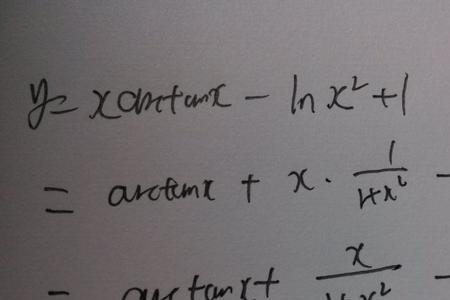 y= x arctanx - ln x² + 1
= arctanx + x · 1/1+x² -
= arctanx + x/1+x² -